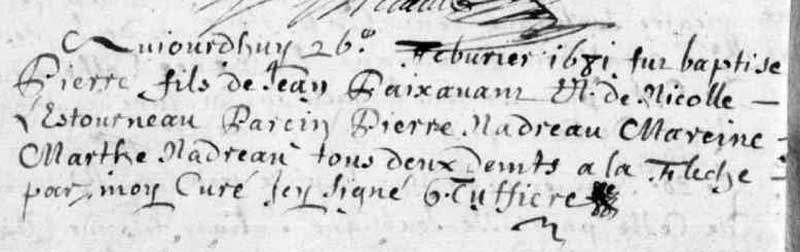 Aujourdhuy 26e Feburier 1681 fut baptise
Pierre fils de Jean Paixavant et de Nicolle
Lestourneau Parein Pierre Nadreau Mareine
Marthe Nadreau tous deux demts a la Fleche
par moy Curé sey signé G. Tuffiere